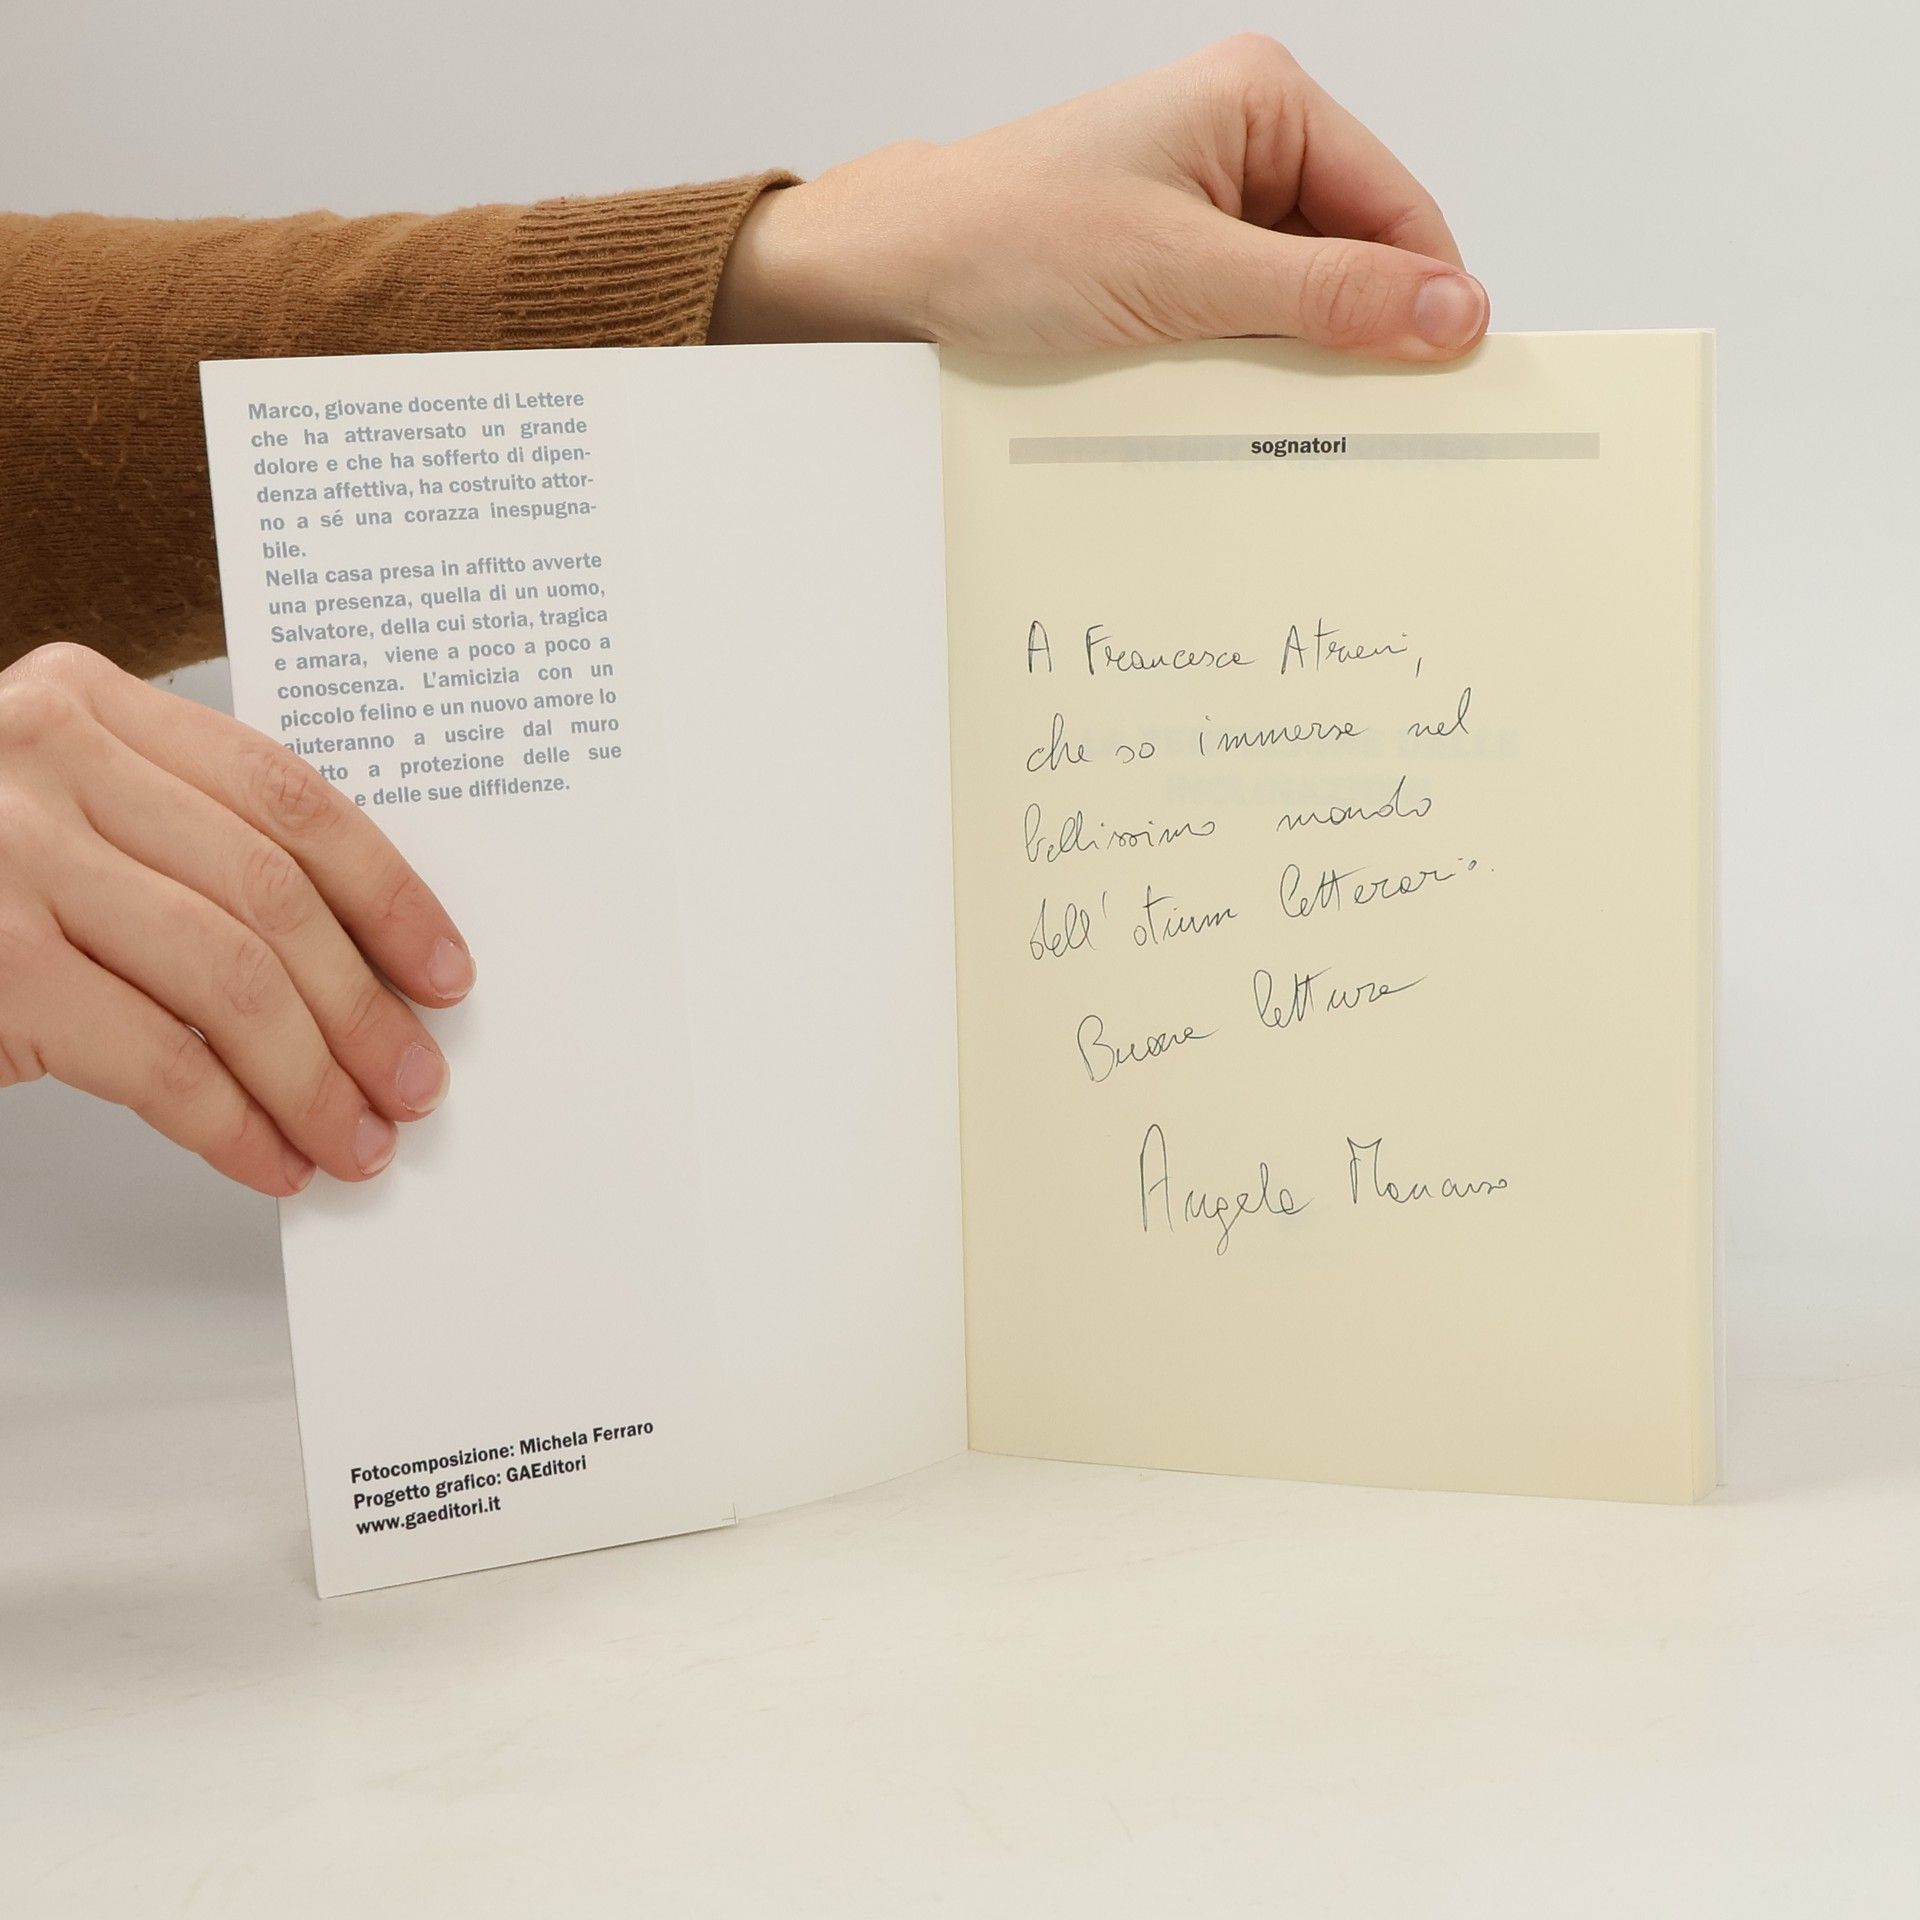 Marco, giovane docente di Lettere
che ha attraversato un grande
dolore e che ha sofferto di dipen-
denza affettiva, ha costruito attor-
no a sé una corazza inespugna-
bile.
Nella casa presa in affitto avverte
una presenza, quella di un uomo,
Salvatore, della cui storia, tragica
e amara, viene a poco a poco a
conoscenza. L'amicizia con un
piccolo felino e un nuovo amore lo
aiuteranno a uscire dal muro
tto a protezione delle sue
e delle sue diffidenze.
Fotocomposizione: Michela Ferraro
Progetto grafico: GAEditori
www.gaeditori.it
sognatori
A Francesca
che so immersa nel
bellissimo mondo
dell'otium letterario.
Buona lettura
Angela